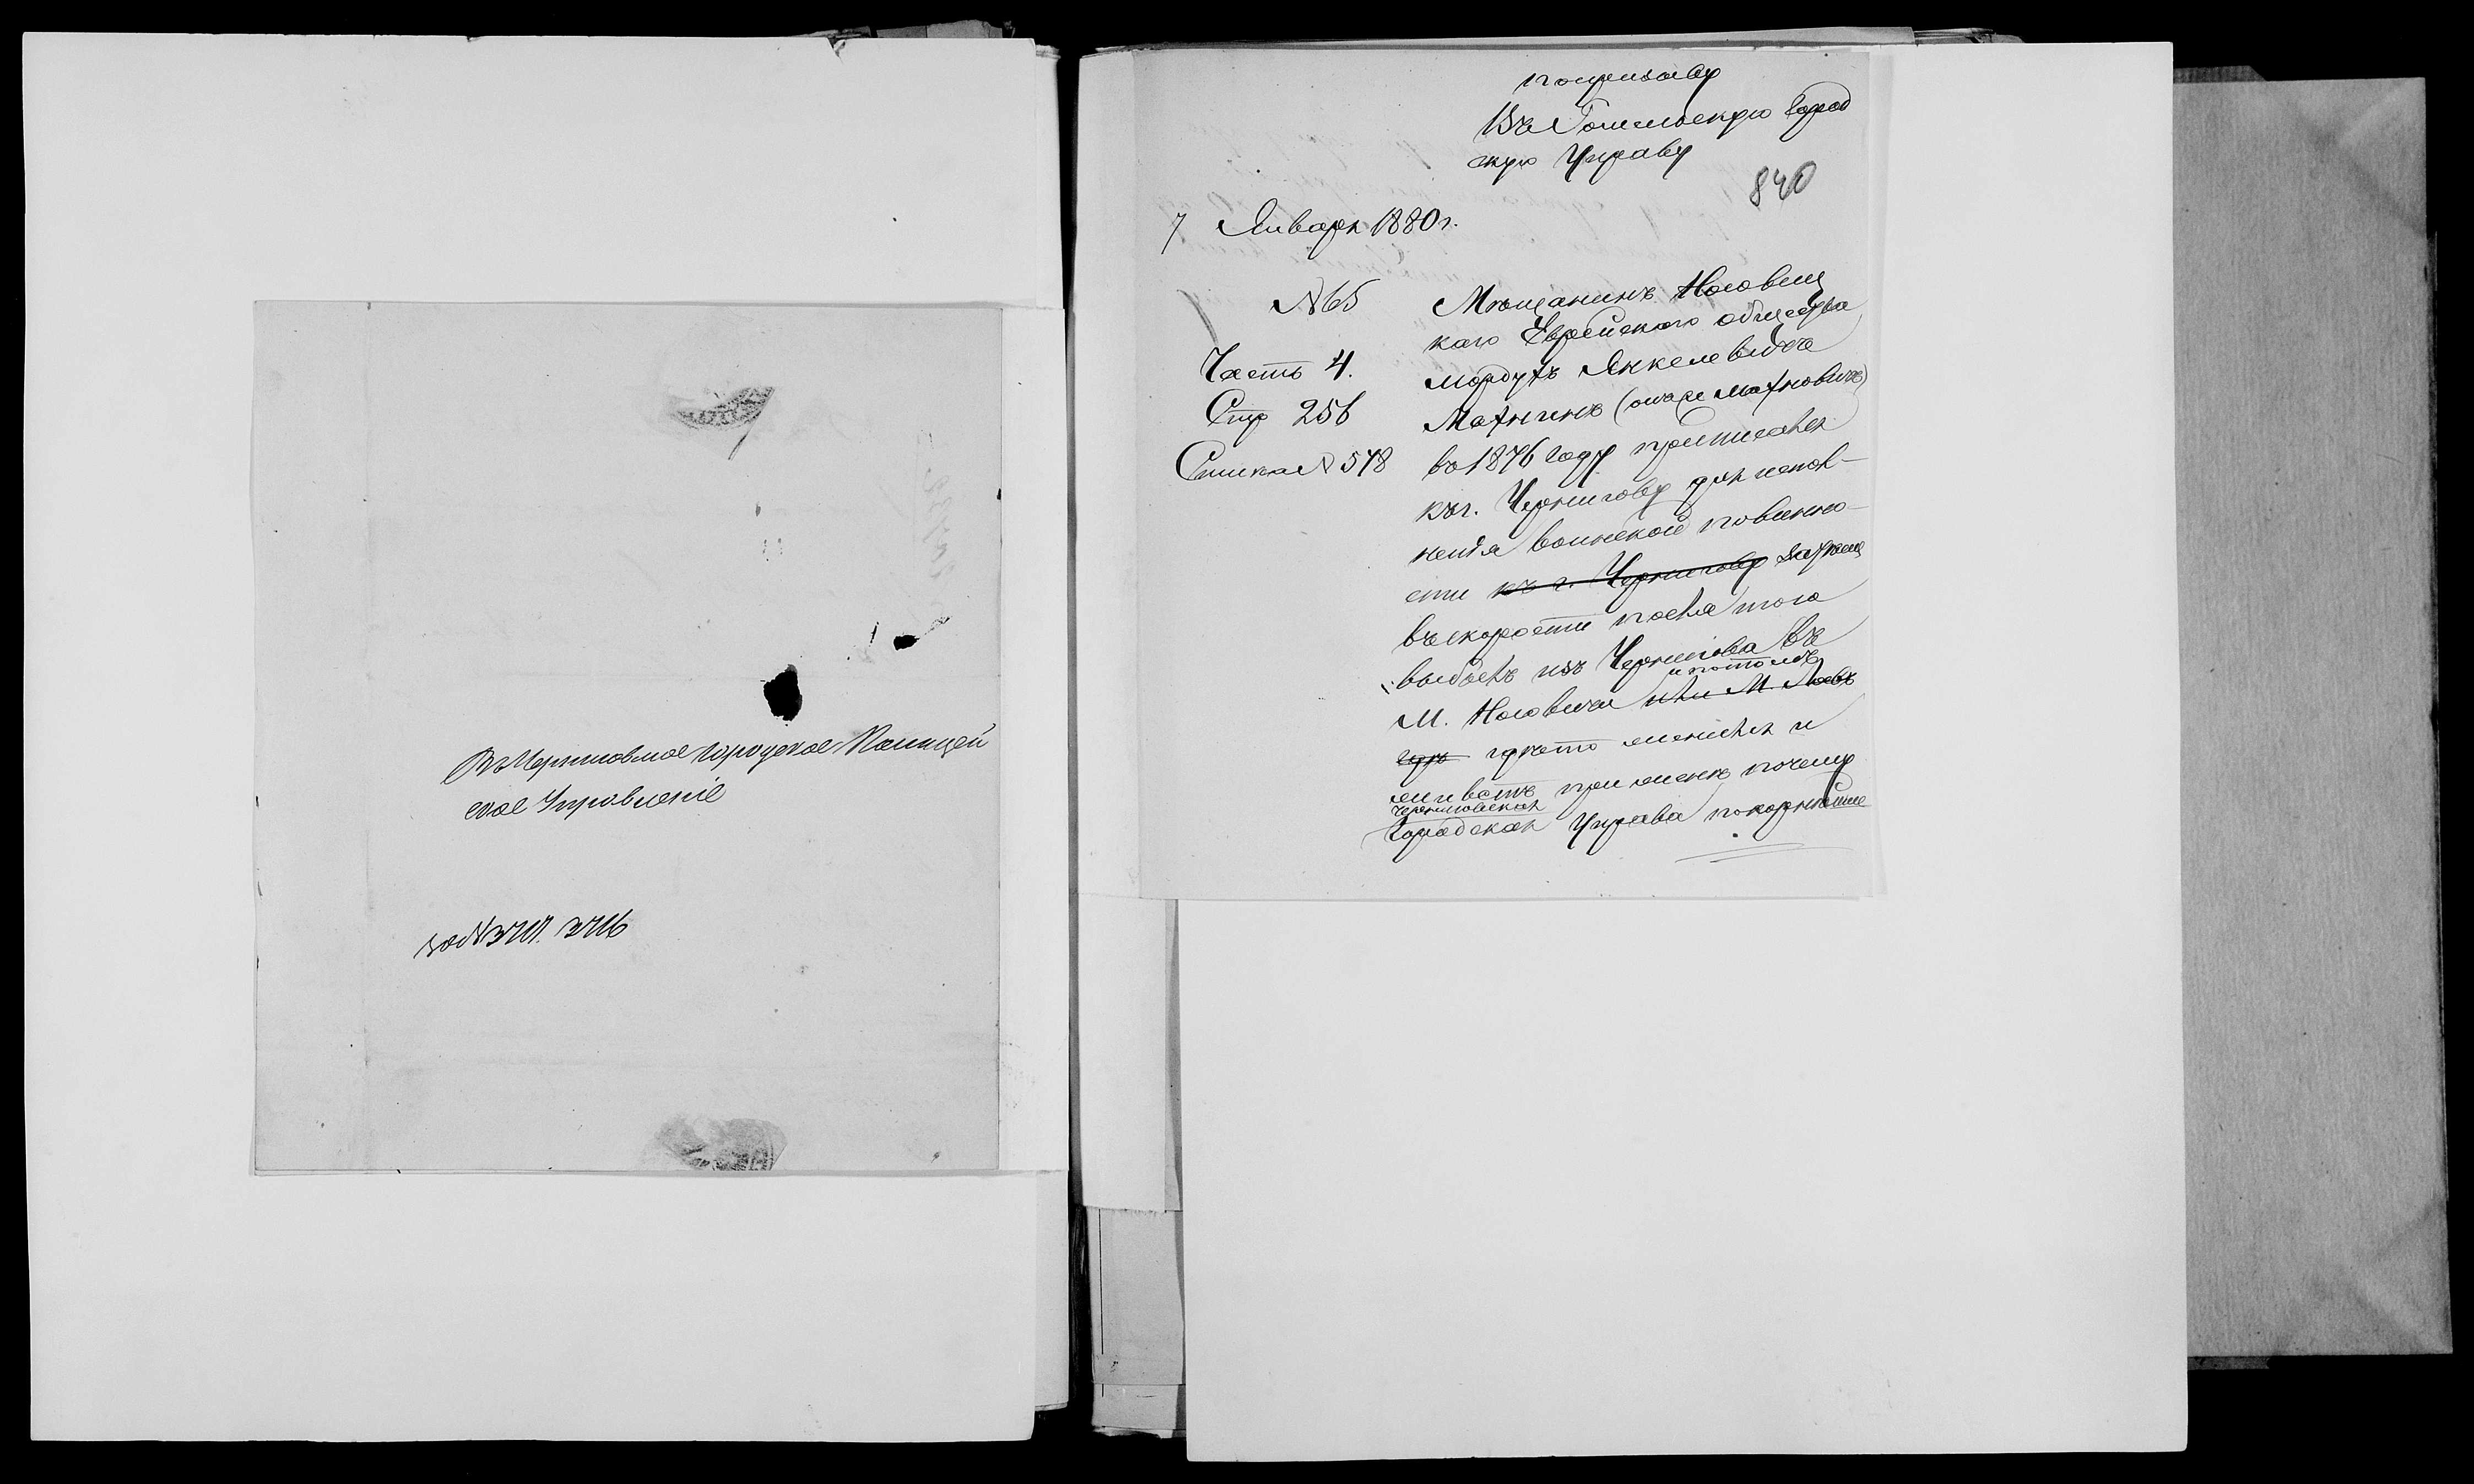 Въ Черниговское Городское Полицей
ское Управленіе
за № 3717. 3716
по призыву
Въ Гомельскую Город
скую Управу
840
7 Января 1880 г.
№ 65
Часть 4.
Стр 256
Списка № 578
Мѣщанинъ Носовец
каго Еврейского общества
Мордухъ Янкелевичъ
Махнинъ (онъ же Махновичъ)
въ 1876 году приписался
къ г. Чернигову для испол-
ненія воинской повинно-
сти къ г. Чернигову
въ скорости послѣ того
выбылъ изъ Чернигова въ
и потомъ
м. Носовичи или м.
гдѣ гдѣто женился и
живетъ при женѣ почему
Черниговская
Городская Управа покорнѣйше